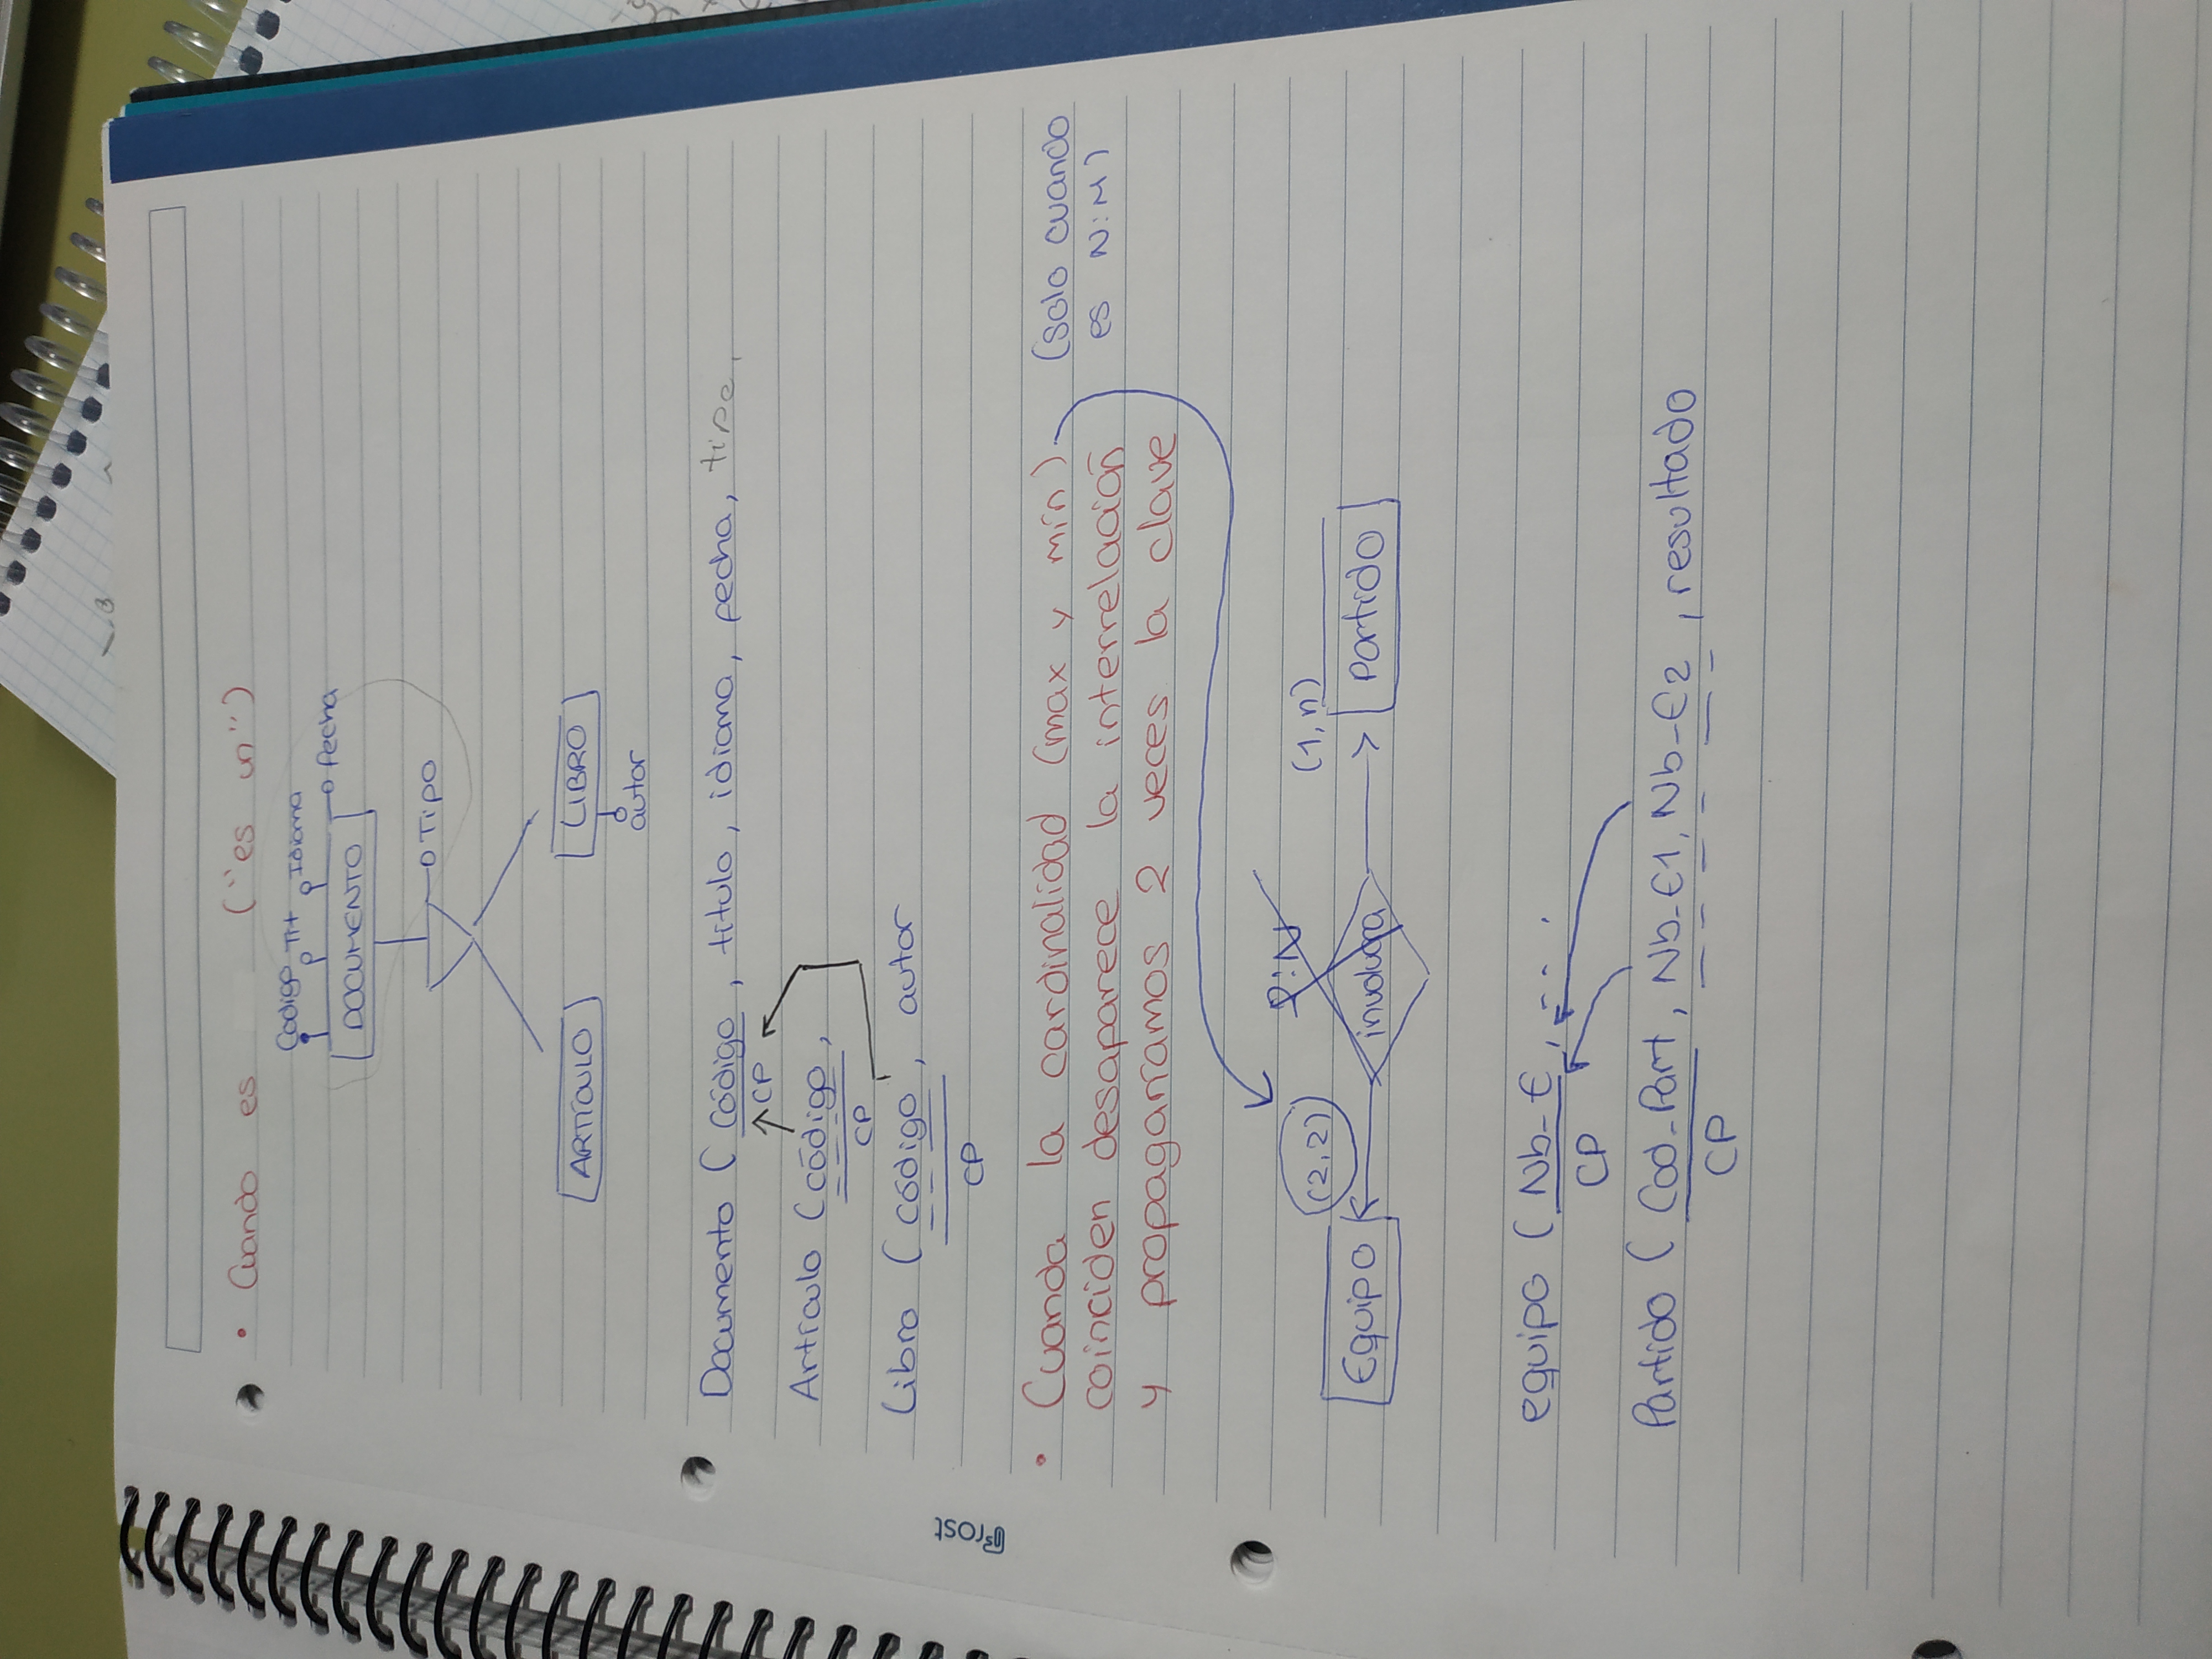 • Cuando es ("es un")
Codigo Tit Idioma
fecha
DOCUMENTO
Tipo
ARTÍCULO LIBRO
autor
Documento ( Código, título, idioma, fecha, tipo,
CP
Artículo (código,
CP
Libro (código, autor
CP
Frost
• Cuanda la cardinalidad (max y mín) (solo cuando
coinciden desaparece la interrelación es N:M)
y propagaríamos 2 veces la clave
(2,2) (1,n)
Equipo involucra Partido
equipo ( Nb_E, ---.
CP
Partido ( Cod_Part, Nb_E1, Nb_E2, resultado
CP